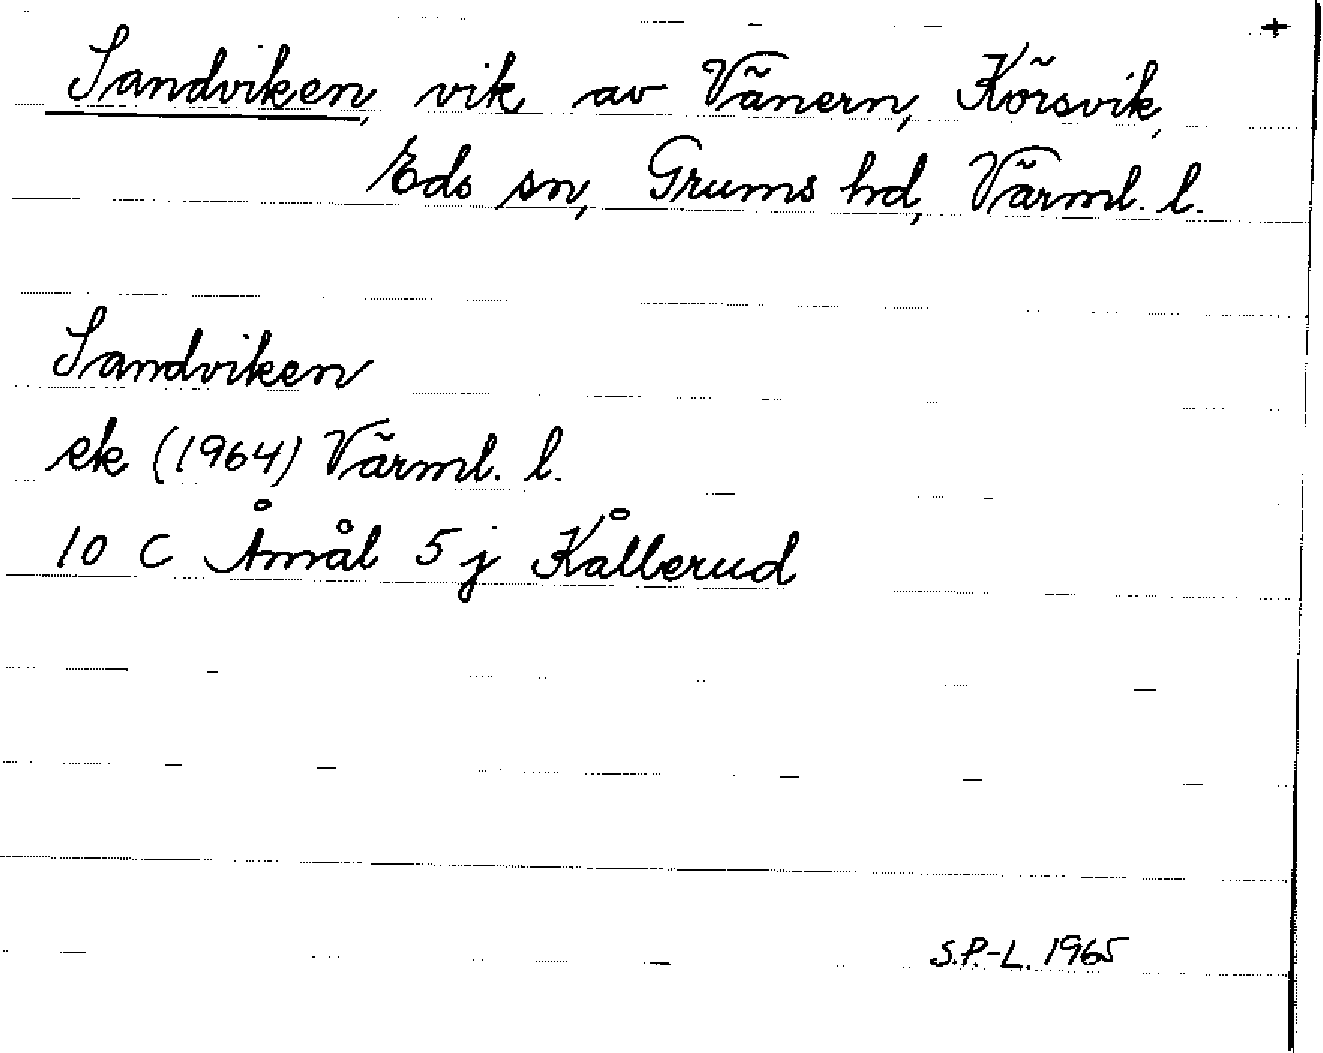 +
Sandviken, vik av Vänern, Körsvik,
Eds sn, Grums hd, Värml. l.
Sandviken
ek (1964) Värml. l.
10 C Åmål 5 j Kålberud
S.P.-L. 1965